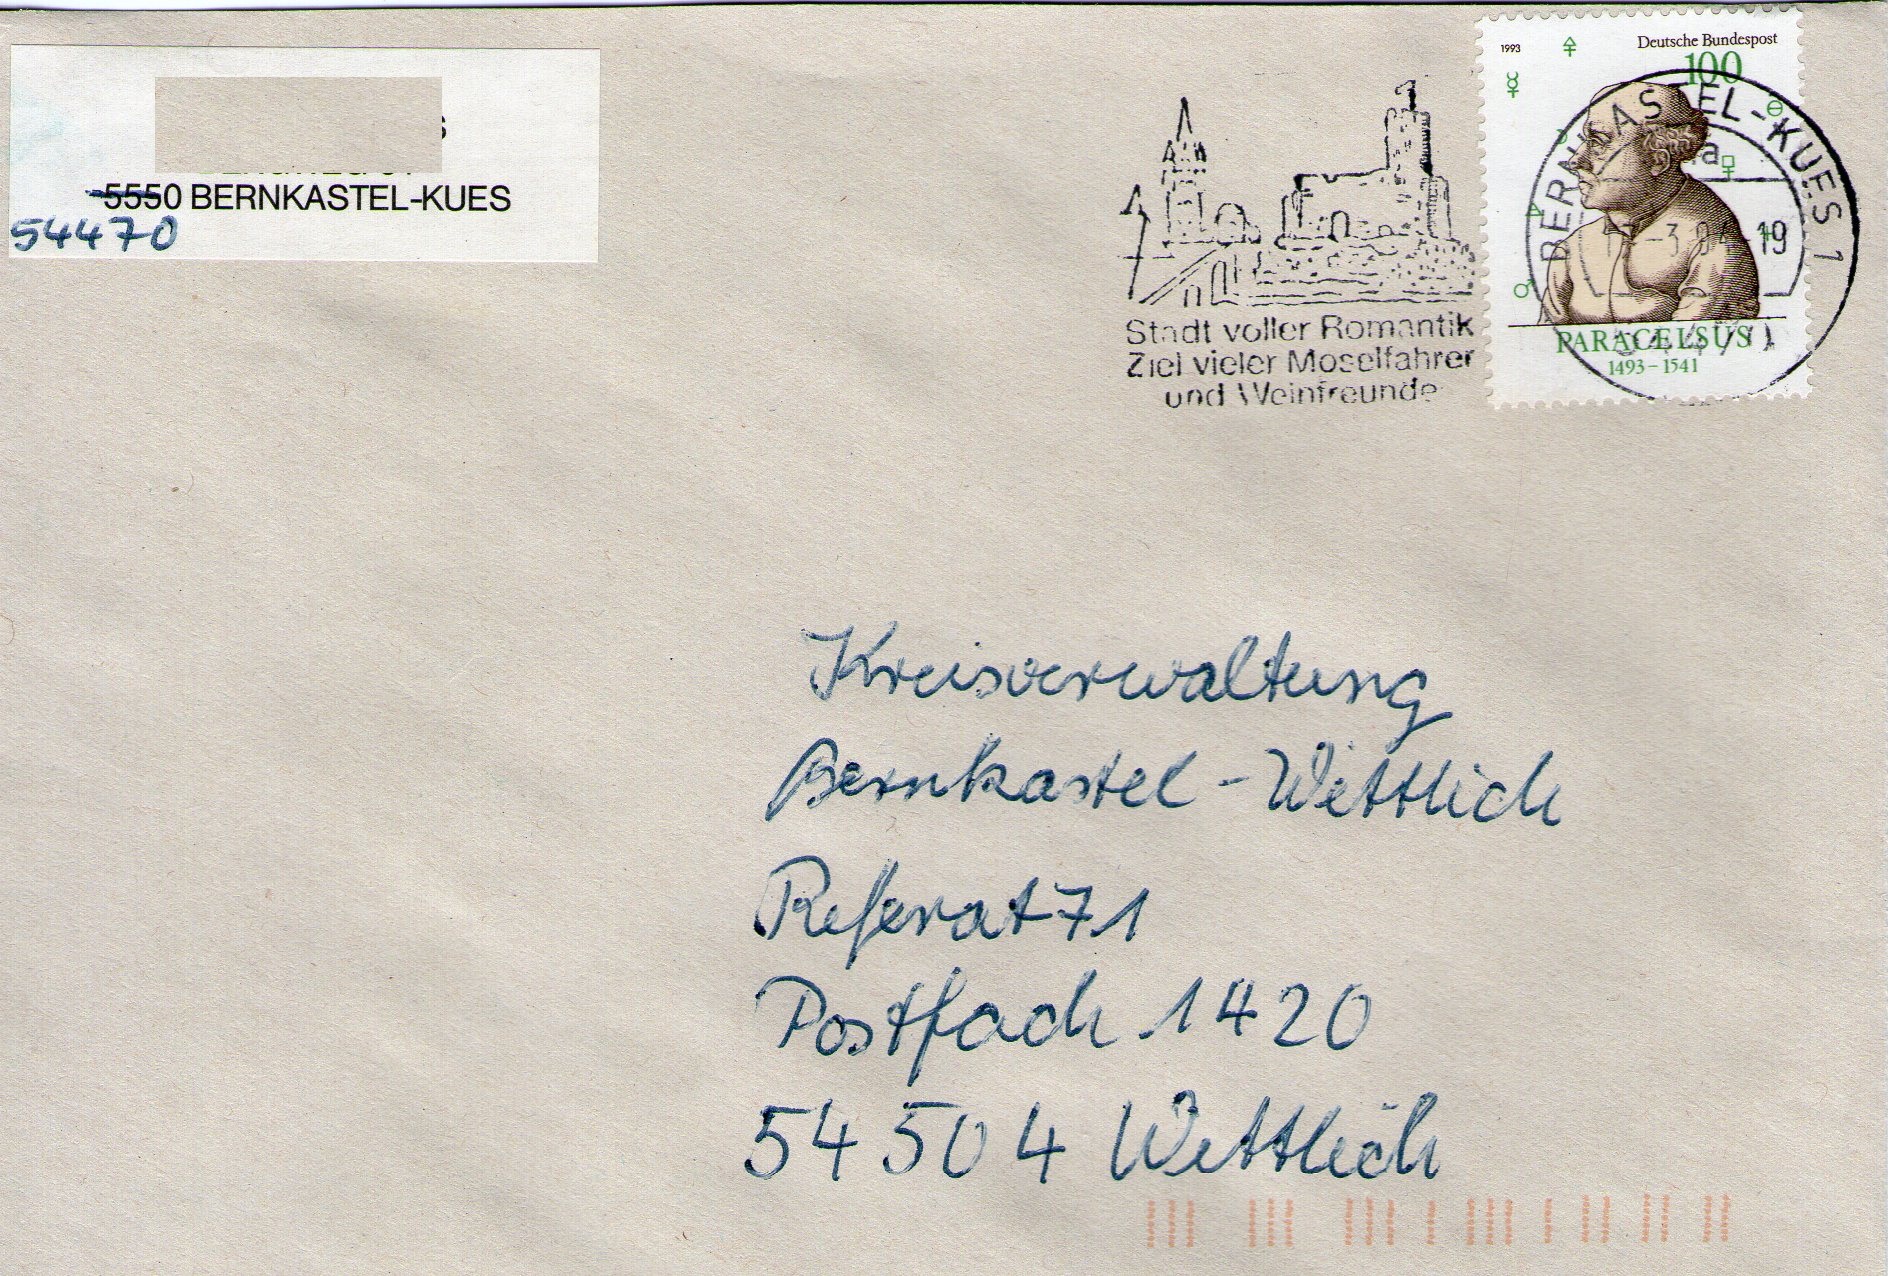 5550 BERNKASTEL-KUES
54470
Stadt voller Romantik
Ziel vieler Moselfahrer
und Weinfreunde
1993
Deutsche Bundespost
100
BERNKASTEL-KUES 1
a
-19
PARACELSUS
1493-1541
Kreisverwaltung
Bernkastel-Wittlich
Referat 71
Postfach 1420
54504 Wittlich